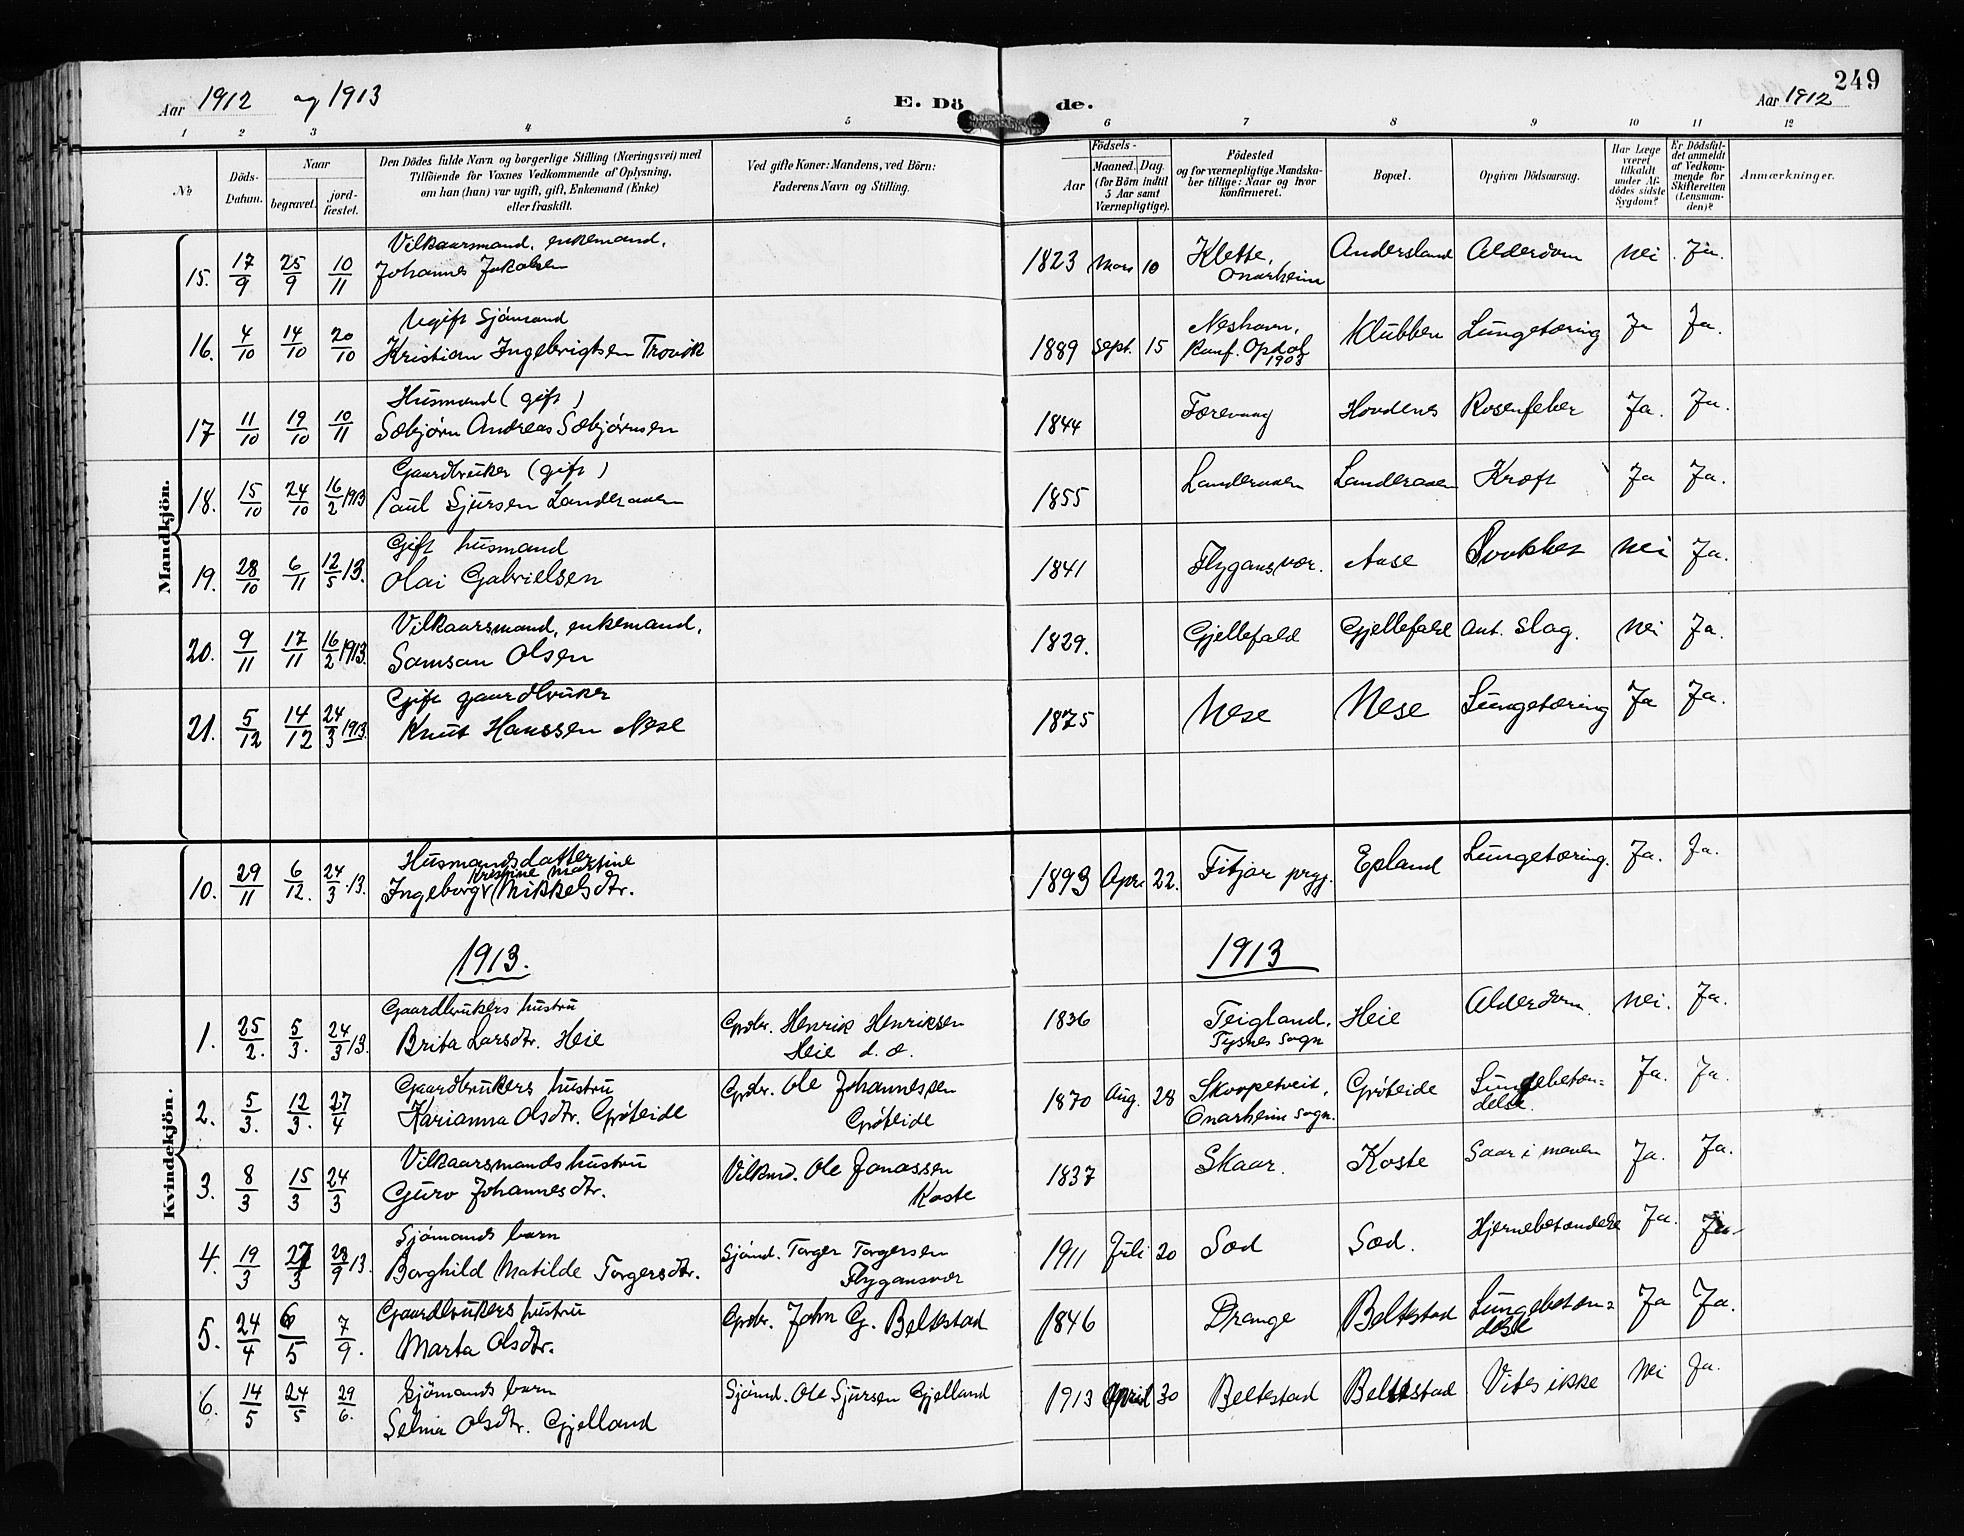 249
Aar 1912 og 1913 E. Dö de. Aar 1912
1 2 3 4 5 6 7 8 9 10 11 12
No Döds-Datum. Naar begravet. jord-fæstet. Den Dödes fulde Navn og borgerlige Stilling (Næringsvei) med Tilföiende for Voxnes Vedkommende af Oplysning, om han (hun) var ugift, gift, Enkemand (Enke) eller fraskilt. Ved gifte Koner: Mandens, ved Börn: Faderens Navn og Stilling. Födsels- Aar Maaned. Dag. (for Börn indtil 5 Aar samt Værnepligtige). Födested og for værnepligtige Mandskaber tillige: Naar og hvor konfirmeret. Bopæl. Opgiven Dödsaarsag. Har Læge været tilkaldt under Afdödes sidste Sygdom? Er Dödsfaldet anmeldt af Vedkommende for Skifteretten (Lensmanden)? Anmærkninger.
Mandkjön.
15. 17/9 25/9 10/11 Vilkaarsmand, enkemand, Johannes Jakobsen 1823 Mars 10 Klette, Onarheim Andersland Alderdom Nei Ja.
16. 4/10 14/10 20/10 Ugift Sjömand Kristian Ingebrigtsen Trovik 1889 Sept. 15 Neshavn, Konf. Opdal 1903 Klubben Lungetæring Ja Ja.
17 11/10 19/10 10/11 Husmand (gift) Sæbjørn Andreas Sæbjørnsen 1844 Færevaag Hovdenes Rosenfeber Ja. Ja.
18. 15/10 24/10 16/2 1913 Gaardbruker (gift) Paul Sjursen Landeraaen 1855 Landeraaen Landeraaen Kræft Ja Ja.
19. 28/10 6/11 12/5 13. Gift husmand Olai Gabrielsen 1841 Flygansvær. Aase Nei Ja.
20. 9/11 17/11 16/2 1913. Vilkaarsmand, enkemand, Samson Olsen 1829. Gjellefald Gjellefald Ant. slag. Nei Ja.
21. 5/12 14/12 24/3 1913. Gift gaardbruker Knut Hanssen Nese 1875 Nese Nese Lungetæring Ja Ja.
Kvindekjön.
10. 29/11 6/12. 24/3 13. Husmandsdatter Ingeborg Kristine Martine Mikkelsdtr. 1893 Apr. 22. Fitjar prgj. Epland Lungetæring. Ja. Ja.
1913. 1913
1. 25/2. 5/3. 24/3 13. Gaardbrukers hustru Brita Larsdtr. Heie Grdbr. Henrik Henriksen Heie d. æ. 1836 Teigland, Tysnes sogn Heie Alderdom Nei. Ja.
2. 5/3. 12/3. 27/4 Gaardbrukers hustru Karianna Olsdtr. Gröteide Grdbr. Ole Johannessen Gröteide 1870 Aug. 28 Skorpetveit, Onarheim sogn. Gröteide Lungebetændelse. Ja. Ja.
3. 8/3 15/3 24/3 Vilkaarsmands hustru Guro Johannesdtr. Vilkmd. Ole Jonassen Koste 1837 Skaar. Koste Saar i maven Ja. Ja.
4. 19/3 27/3 28/9 13. Sjömands barn Borghild Matilde Torgersdtr. Sjömd. Torger Torgersen Flygansvær 1911 Juli 20 Sæd Sæd. Hjernebetændelse Ja. Ja.
5. 24/4 6/5 7/9. Gaardbrukers hustru Marta Olsdtr. Grdbr. John G. Beltestad 1846 Drange Beltestad Lungebetændelse Ja Ja.
6. 14/5 24/5 29/6. Sjömands barn Selma Olsdtr. Gjelland Sjömd. Ole Sjursen Gjelland 1913 April 30 Beltestad Beltestad Vites ikke Nei Ja.